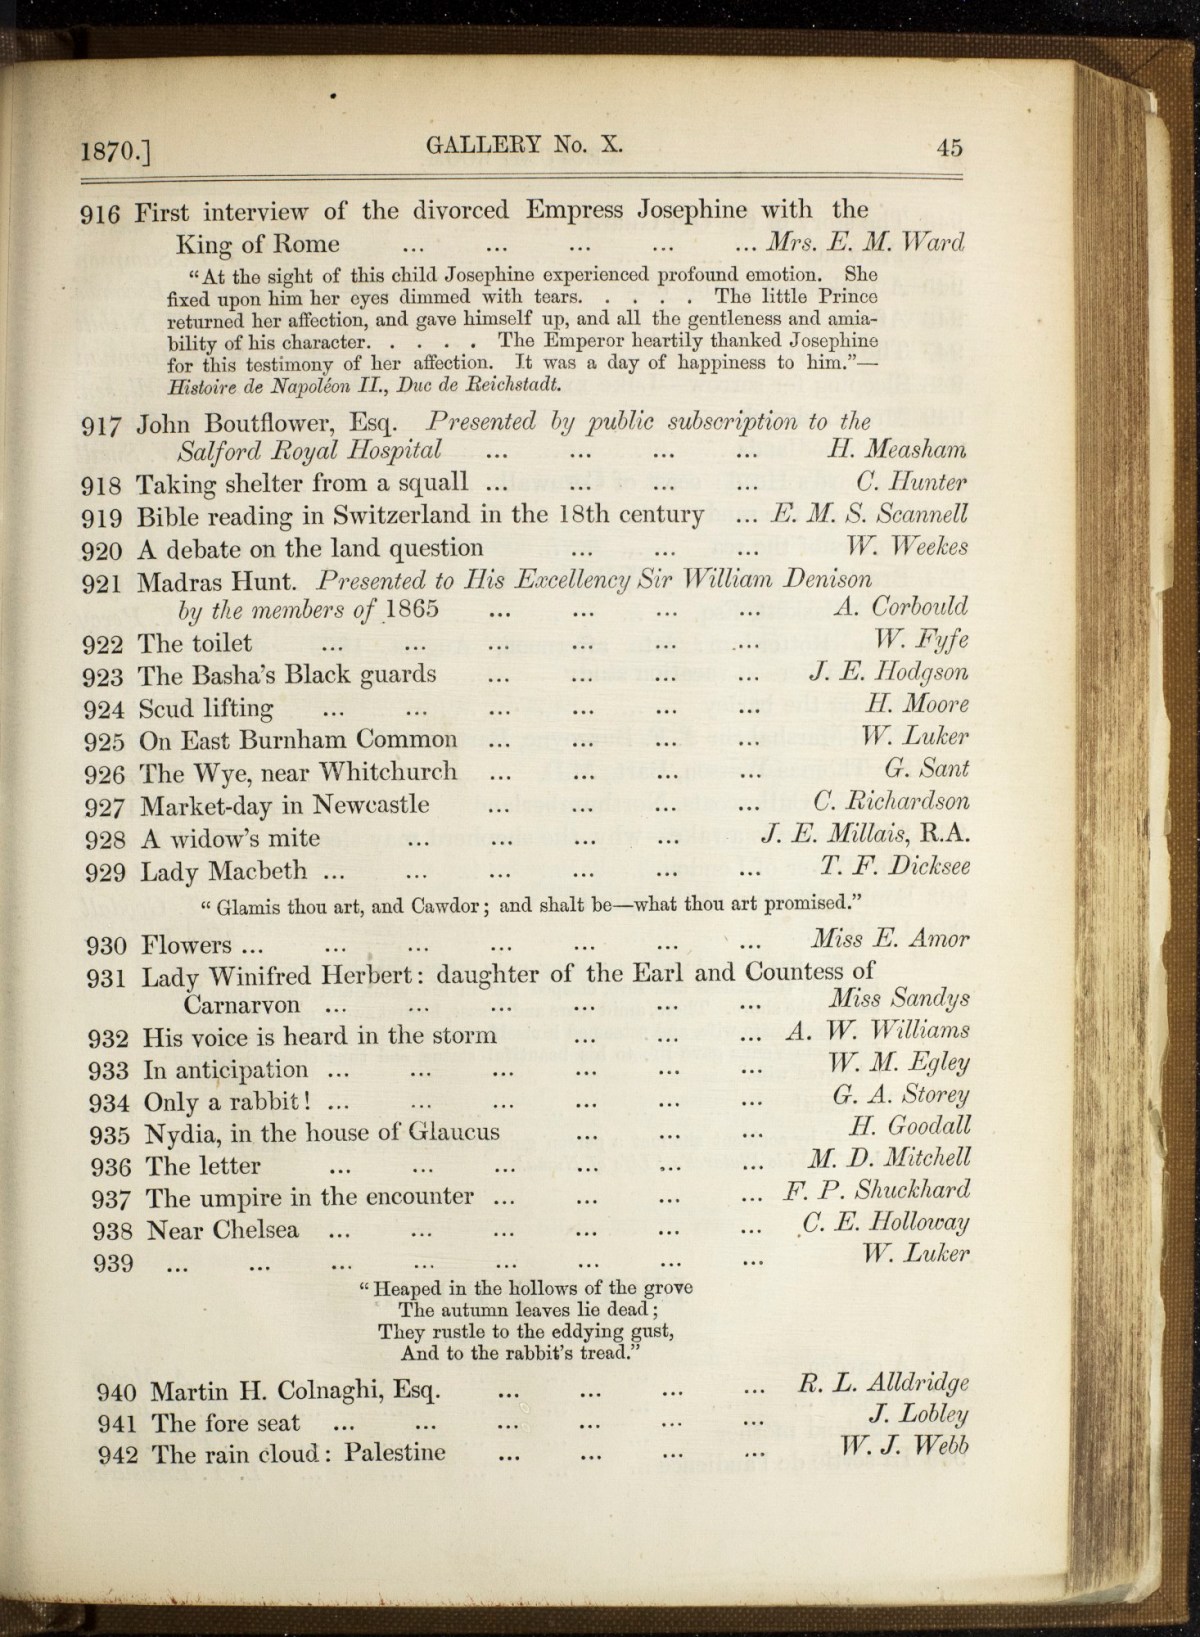 1870.] GALLERY No. X. 45
916 First interview of the divorced Empress Josephine with the
King of Rome ... ... ... ... ... Mrs. E. M. Ward
“At the sight of this child Josephine experienced profound emotion. She
fixed upon him her eyes dimmed with tears. . . . . The little Prince
returned her affection, and gave himself up, and all the gentleness and amia-
bility of his character. . . . . The Emperor heartily thanked Josephine
for this testimony of her affection. It was a day of happiness to him.”—
Histoire de Napoléon II., Duc de Reichstadt.
917 John Boutflower, Esq. Presented by public subscription to the
Salford Royal Hospital ... ... ... ... H. Measham
918 Taking shelter from a squall ... ... ... ... C. Hunter
919 Bible reading in Switzerland in the 18th century ... E. M. S. Scannell
920 A debate on the land question ... ... ... W. Weekes
921 Madras Hunt. Presented to His Excellency Sir William Denison
by the members of 1865 ... ... ... ... A. Corbould
922 The toilet ... ... ... ... ... ... W. Fyfe
923 The Basha's Black guards ... ... ... ... J. E. Hodgson
924 Scud lifting ... ... ... ... ... ... H. Moore
925 On East Burnham Common ... ... ... ... W. Luker
926 The Wye, near Whitchurch ... ... ... ... G. Sant
927 Market-day in Newcastle ... ... ... ... C. Richardson
928 A widow's mite ... ... ... ... J. E. Millais, R.A.
929 Lady Macbeth ... ... ... ... ... ... T. F. Dicksee
“Glamis thou art, and Cawdor; and shalt be—what thou art promised.”
930 Flowers ... ... ... ... ... ... ... Miss E. Amor
931 Lady Winifred Herbert: daughter of the Earl and Countess of
Carnarvon ... ... ... ... ... ... Miss Sandys
932 His voice is heard in the storm ... ... ... A. W. Williams
933 In anticipation ... ... ... ... ... ... W. M. Egley
934 Only a rabbit! ... ... ... ... ... ... G. A. Storey
935 Nydia, in the house of Glaucus ... ... ... H. Goodall
936 The letter ... ... ... ... ... ... M. D. Mitchell
937 The umpire in the encounter ... ... ... ... F. P. Shuckhard
938 Near Chelsea ... ... ... ... ... ... C. E. Holloway
939 ... ... ... ... ... ... ... ... W. Luker
“Heaped in the hollows of the grove
The autumn leaves lie dead;
They rustle to the eddying gust,
And to the rabbit's tread.”
940 Martin H. Colnaghi, Esq. ... ... ... ... R. L. Alldridge
941 The fore seat ... ... ... ... ... ... J. Lobley
942 The rain cloud: Palestine ... ... ... ... W. J. Webb